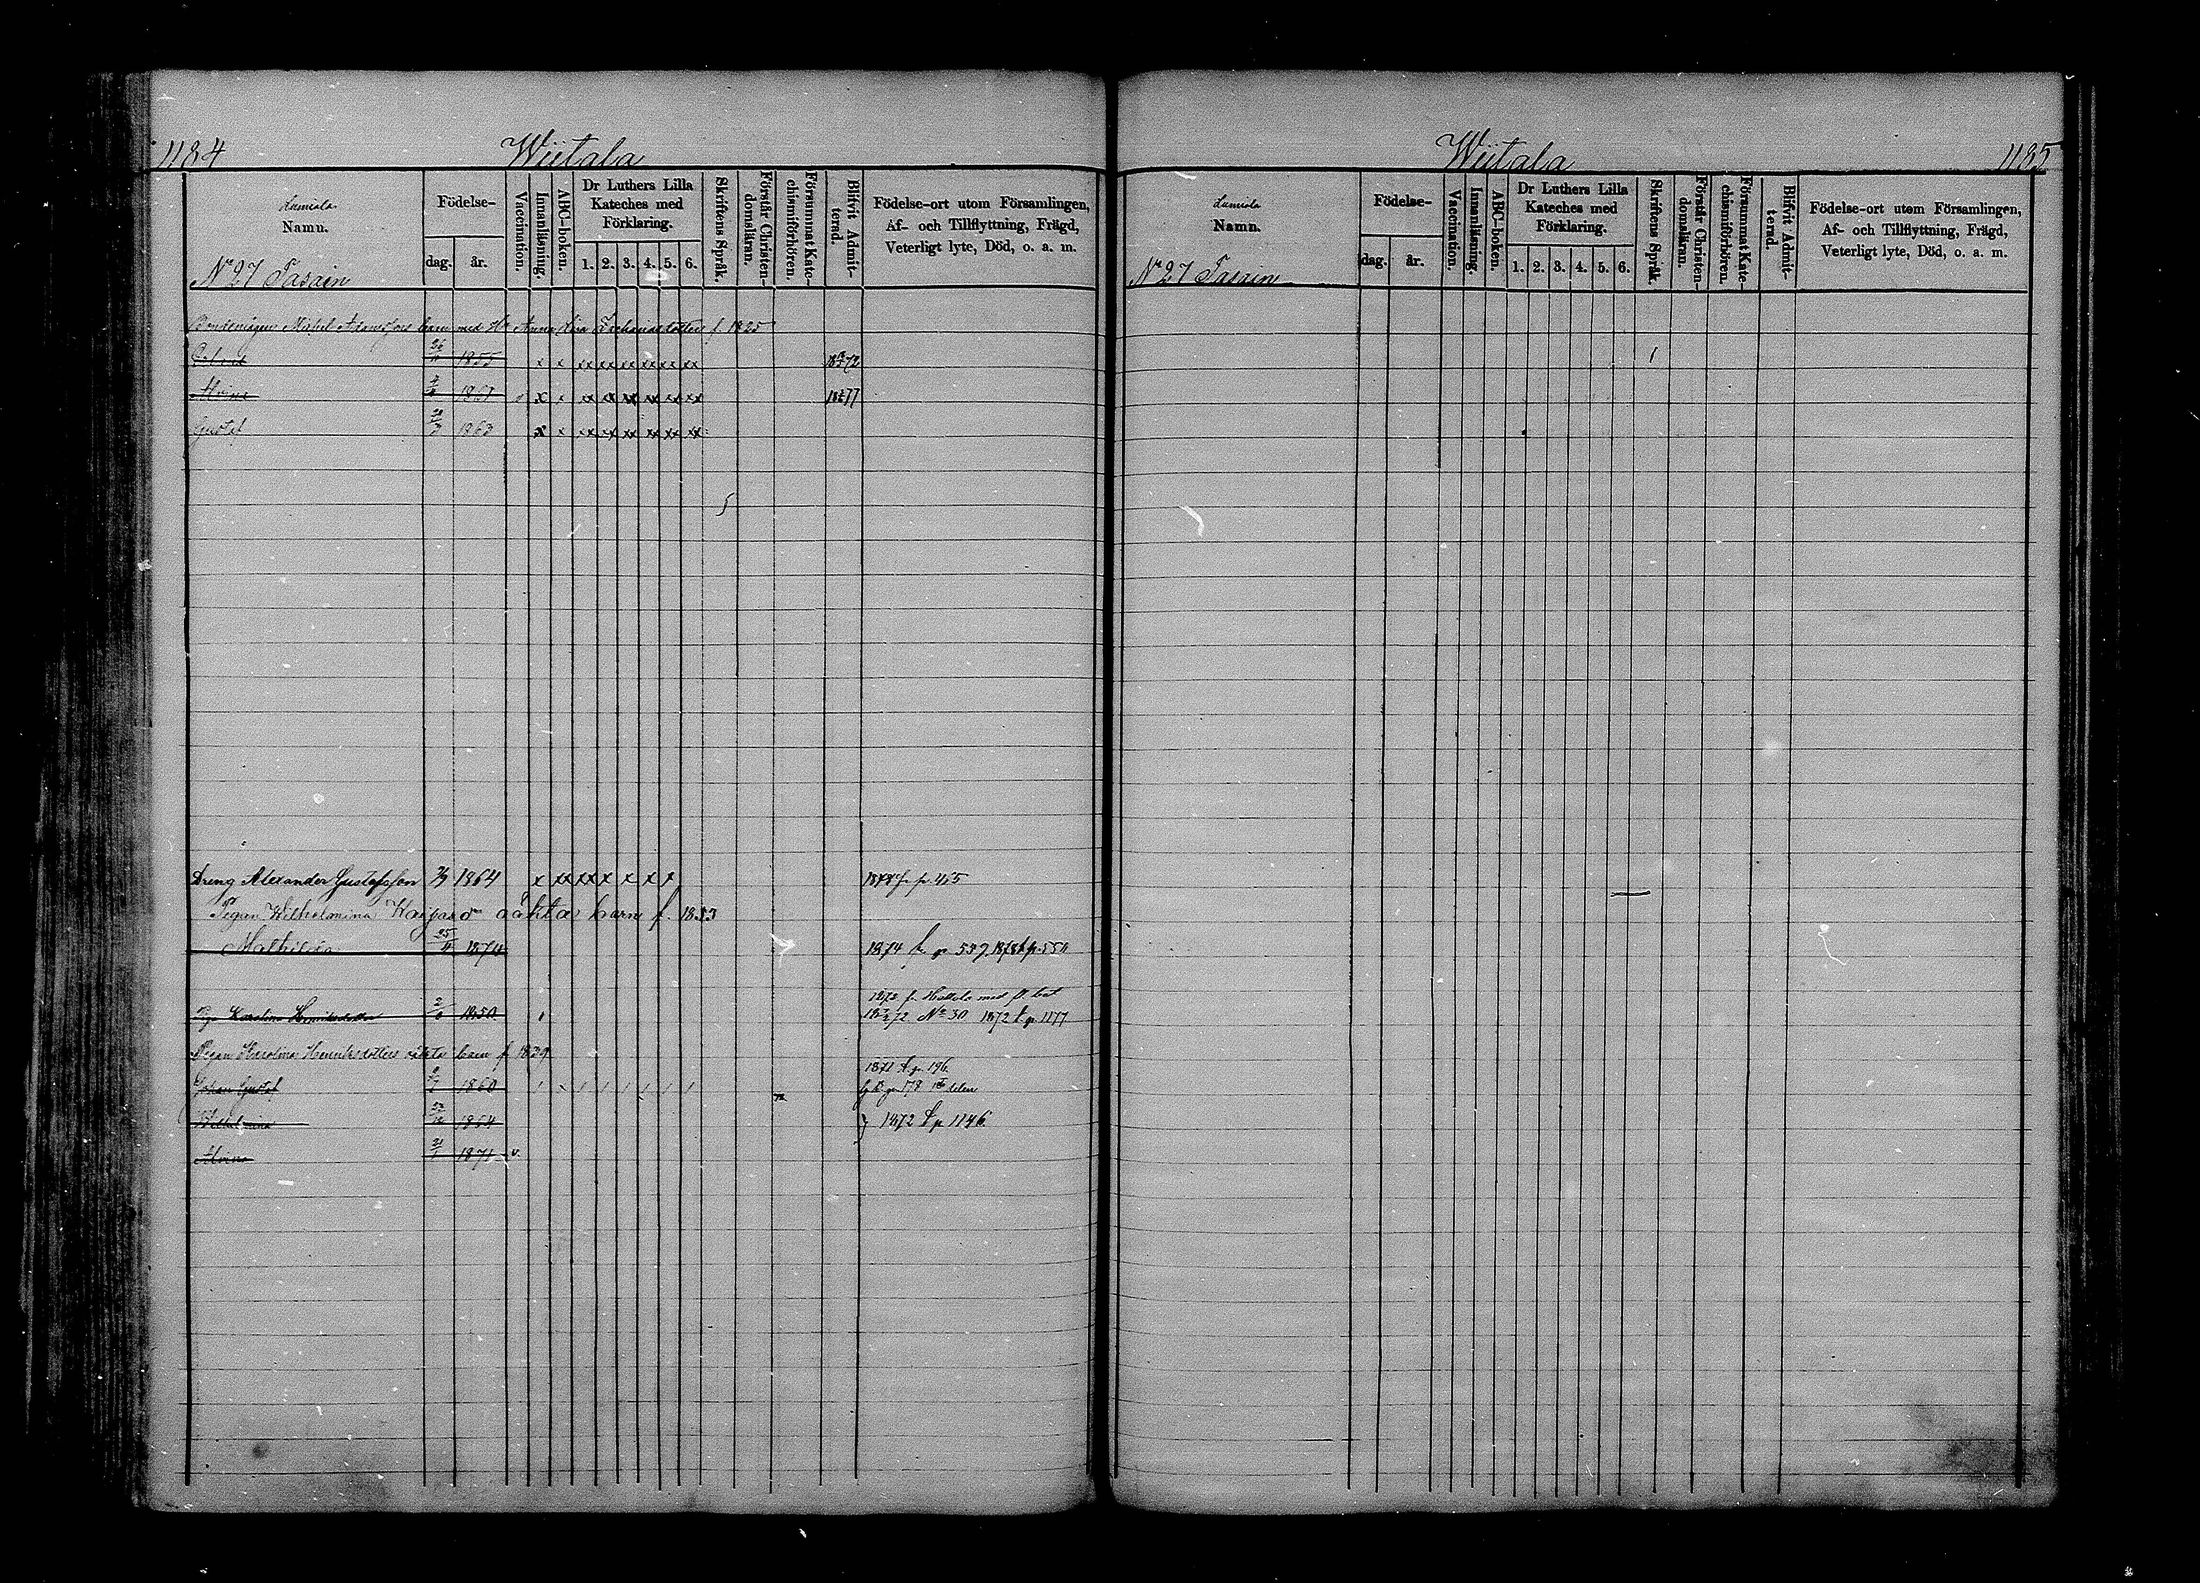 1184
Wiitala
Lumiala
Namn.
Födelse-
dag.
år.
Vaccination.
Innanläsning.
ABC-boken.
Dr Luthers Lilla
Kateches med
Förklaring.
1. 2. 3. 4. 5. 6.
Skriftens Språk.
Förstår Christen-
domsläran.
Försummat Kate-
chismiförhören.
Blifvit Admit-
terad.
Födelse-ort utom Församlingen,
Af- och Tillflyttning, Frägd,
Veterligt lyte, Död, o. a. m.
No 27 Tasain
barn med Anna Lisa f. 1825
26 1855 x x xx xx xx xx xx xx 1872
1861 x x xx xx xx xx xx xx 1877
Gustaf 1863 x x xx xx xx xx xx xx
Dreng Alexander Gustafsson 1864 x xx xx x x x x 1878 fr p. 455
Pigan Wilhelmina oäkta barn f. 1853
Mathilda 25/11 1874 1874 fr p 539. 1878 t p. 554
1872 fr med fl. bet
Piga Karolina Henriksdotter 1850 No 30 1872 t p 1177
Pigan Karolina Henriksdotters oäkta barn f 1839
1871 t p 196.
Johan Gustaf 1860
p 178 delen
Wilhelmina 1864 } 1872 t p 1146.
Alvina 1871 v.
1185
Wiitala
Lumiala
Namn.
Födelse-
dag.
år.
Vaccination.
Innanläsning.
ABC-boken.
Dr Luthers Lilla
Kateches med
Förklaring.
1. 2. 3. 4. 5. 6.
Skriftens Språk.
Förstår Christen-
domsläran.
Försummat Kate-
chismiförhören.
Blifvit Admit-
terad.
Födelse-ort utom Församlingen,
Af- och Tillflyttning, Frägd,
Veterligt lyte, Död, o. a. m.
No 27 Tasain